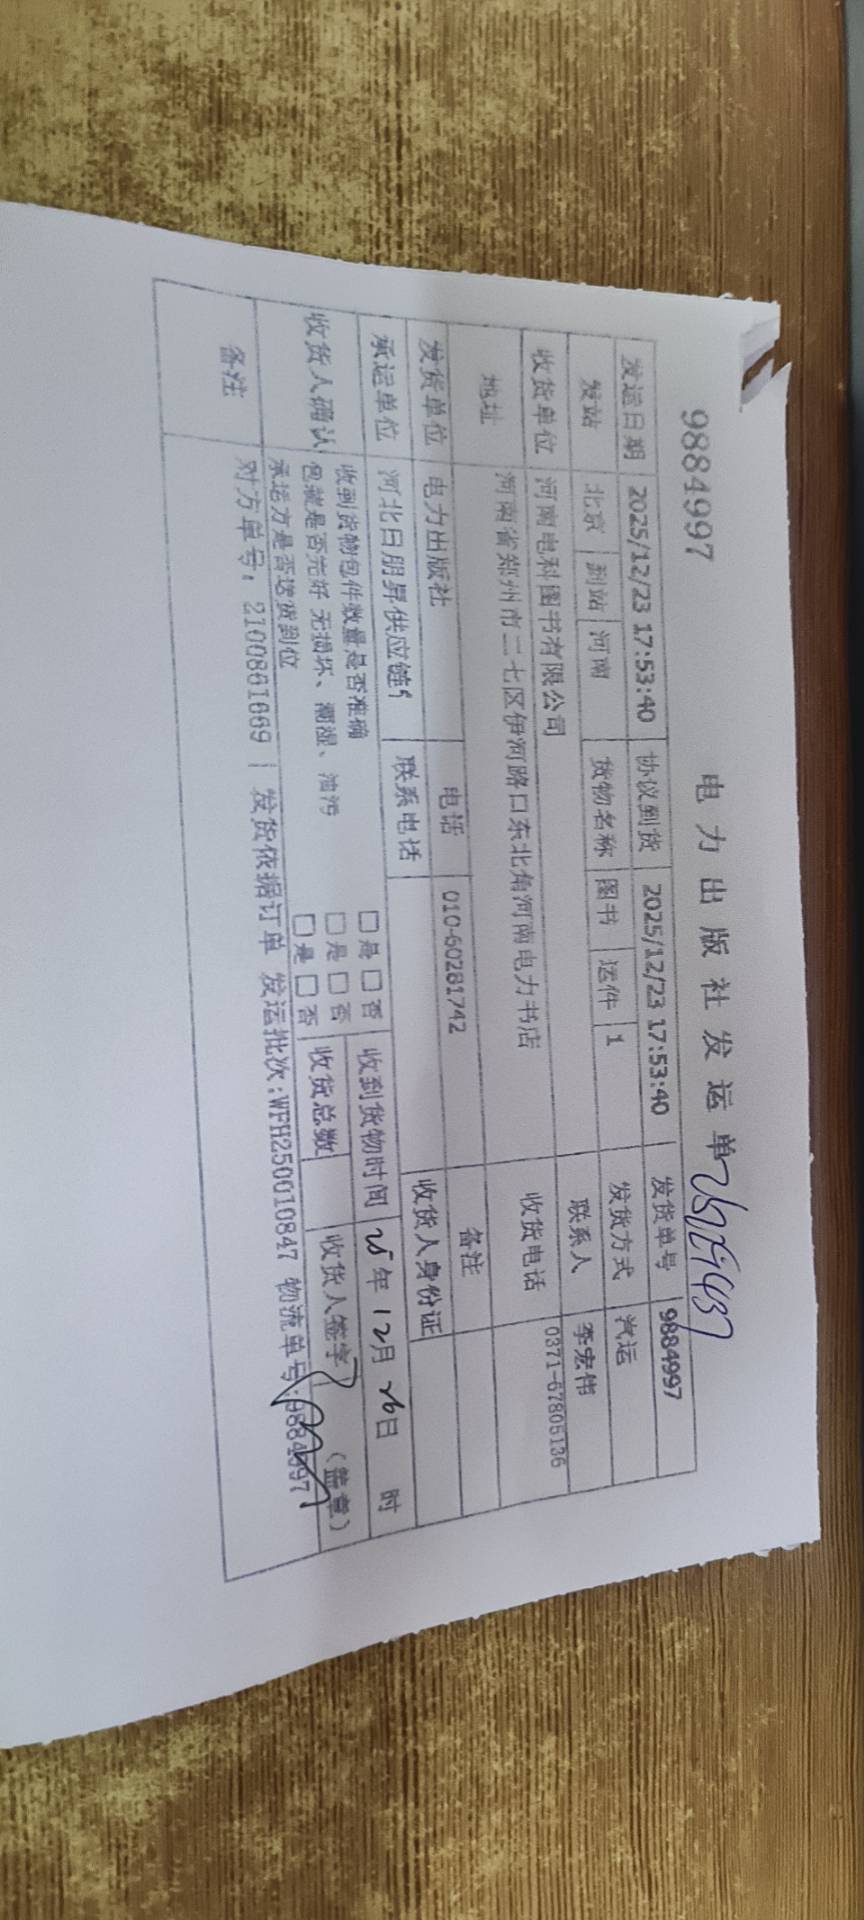 9884997
电力出版社发运单
发运日期 2025/12/23 17:53:40 协议到货 2025/12/23 17:53:40 发货单号 9884997
发站 北京 到站 河南 货物名称 图书 运件 1 发货方式 汽运
收货单位 河南电科图书有限公司 联系人 李宏伟
地址 河南省郑州市二七区伊河路口东北角河南电力书店 收货电话 0371-67805136
发货单位 电力出版社 电话 010-60281742 备注
承运单位 河北日朋昇供应链 联系电话 收货人身份证
收货人确认 收到货物包件数量是否准确 □是 □否 收到货物时间 25年12月26日 时
包装是否完好 无损坏、潮湿、油污 □是 □否 收货总数 收货人签字 (盖章)
承运方是否送货到位 □是 □否
备注 对方单号：2100861669 | 发货依据订单 发运批次:WFH250010847 物流单号:9884997